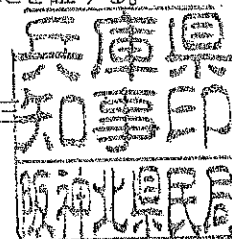 兵庫県
知事印
阪神北県民局